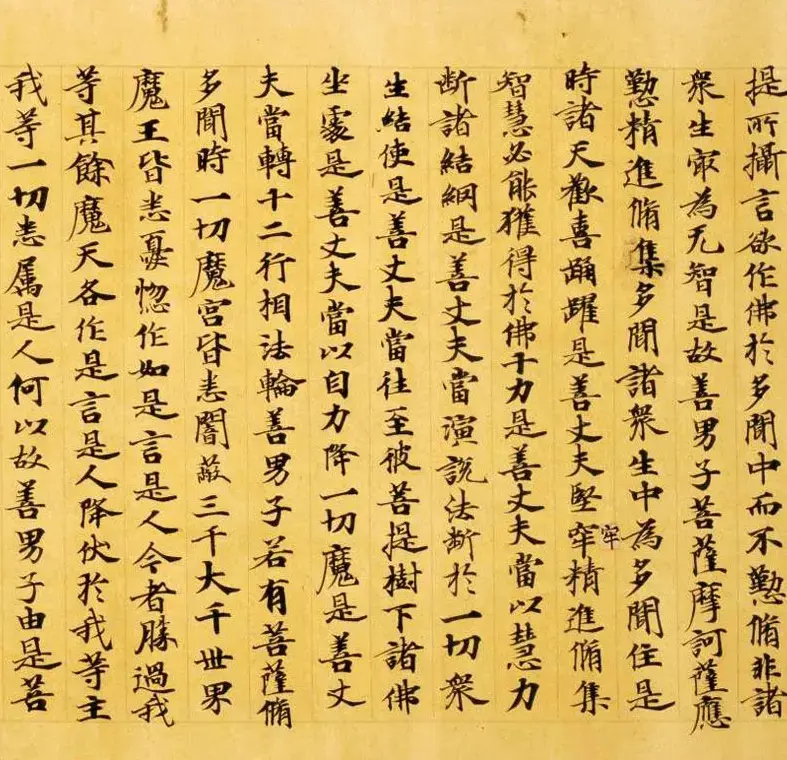 提所攝言欲作佛於多聞中而不懃脩非諸
衆生㝡為无智是故善男子菩薩摩訶薩應
懃精進脩集多聞諸衆生中為多聞住是
時諸天歡喜踊躍是善丈夫堅窂牢精進脩集
智慧必能獲得於佛十力是善丈夫當以慧力
断諸結網是善丈夫當演說法断於一切衆
生結使是善丈夫當往至彼菩提樹下諸佛
坐處是善丈夫當以自力降一切魔是善丈
夫當轉十二行相法輪善男子若有菩薩脩
多聞時一切魔宮皆悉闇蔽三千大千世界
魔王皆悉憂惱作如是言是人今者勝過我
等其餘魔天各作是言是人降伏於我等主
我等一切悉属是人何以故善男子由是菩